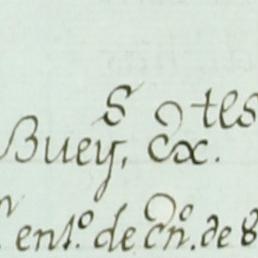 S tes
Buey, Ex.
ent.º de Cnº. de 8